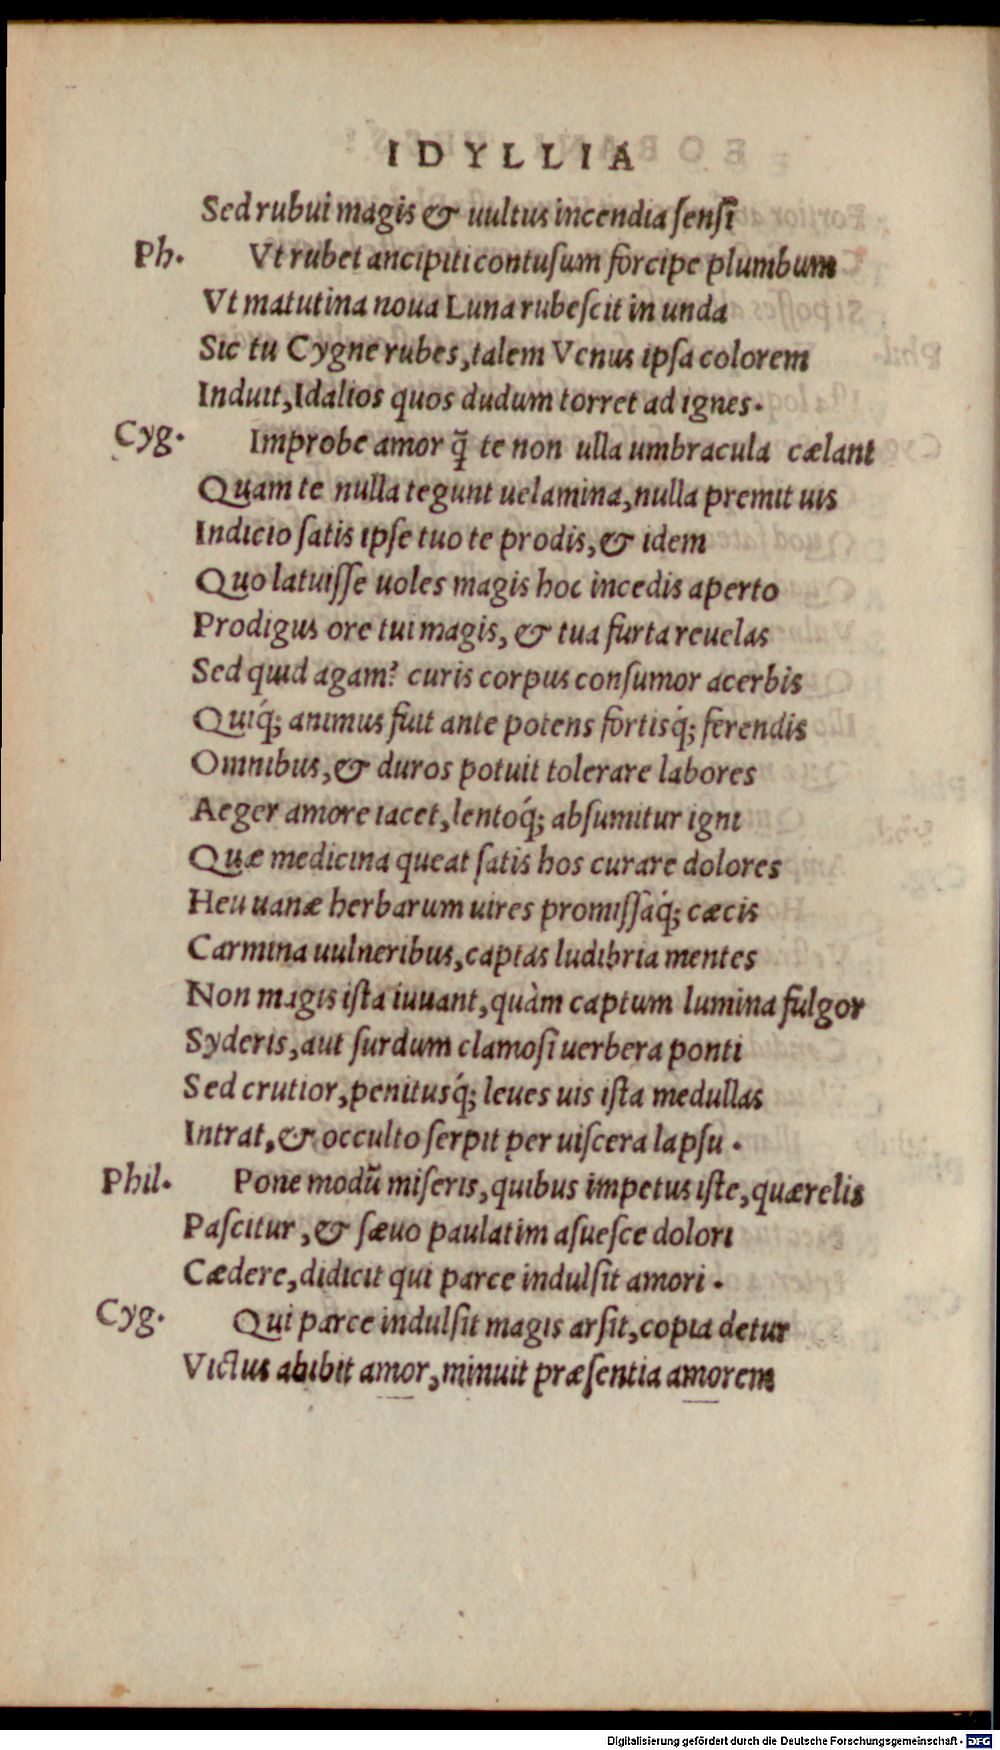 IDYLLIA
Sed rubui magis & uultus incendia sensi
Ph. Vt rubet ancipiti contusum forcipe plumbum
Vt matutina noua Luna rubescit in unda
Sic tu Cygne rubes, talem Venus ipsa colorem
Induit, Idalios quos dudum torret ad ignes.
Cyg. Improbe amor q̃ te non ulla umbracula cælant
Quam te nulla tegunt uelamina, nulla premit uis
Indicio satis ipse tuo te prodis, & idem
Quo latuisse uoles magis hoc incedis aperto
Prodigus ore tui magis, & tua furta reuelas
Sed quid agam? curis corpus consumor acerbis
Quiq́; animus fuit ante potens fortisq́; ferendis
Omnibus, & duros potuit tolerare labores
Aeger amore iacet, lentoq́; absumitur igni
Quæ medicina queat satis hos curare dolores
Heu uanæ herbarum uires promissaq́; cæcis
Carmina uulneribus, captas ludibria mentes
Non magis ista iuuant, quàm captum lumina fulgor
Syderis, aut surdum clamosi uerbera ponti
Sed crutior, penitusq́; leues uis ista medullas
Intrat, & occulto serpit per uiscera lapsu.
Phil. Pone modũ miseris, quibus impetus iste, quærelis
Pascitur, & sæuo paulatim asuesce dolori
Cædere, didicit qui parce indulsit amori.
Cyg. Qui parce indulsit magis arsit, copia detur
Victus abibit amor, minuit præsentia amorem
Digitalisierung gefördert durch die Deutsche Forschungsgemeinschaft - DFG